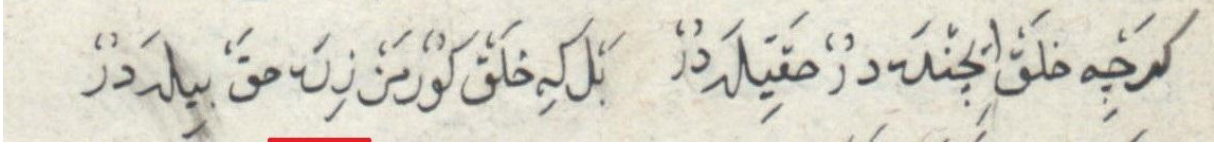 كَرَچِه خَلَقْ اِچِنْدَه دُرْ حَقِّيلَه دُرْ بَلْ كِه خَلَقْ كَوُرْمَنْ زِنَه حَقّ بِيلَه دُرْ